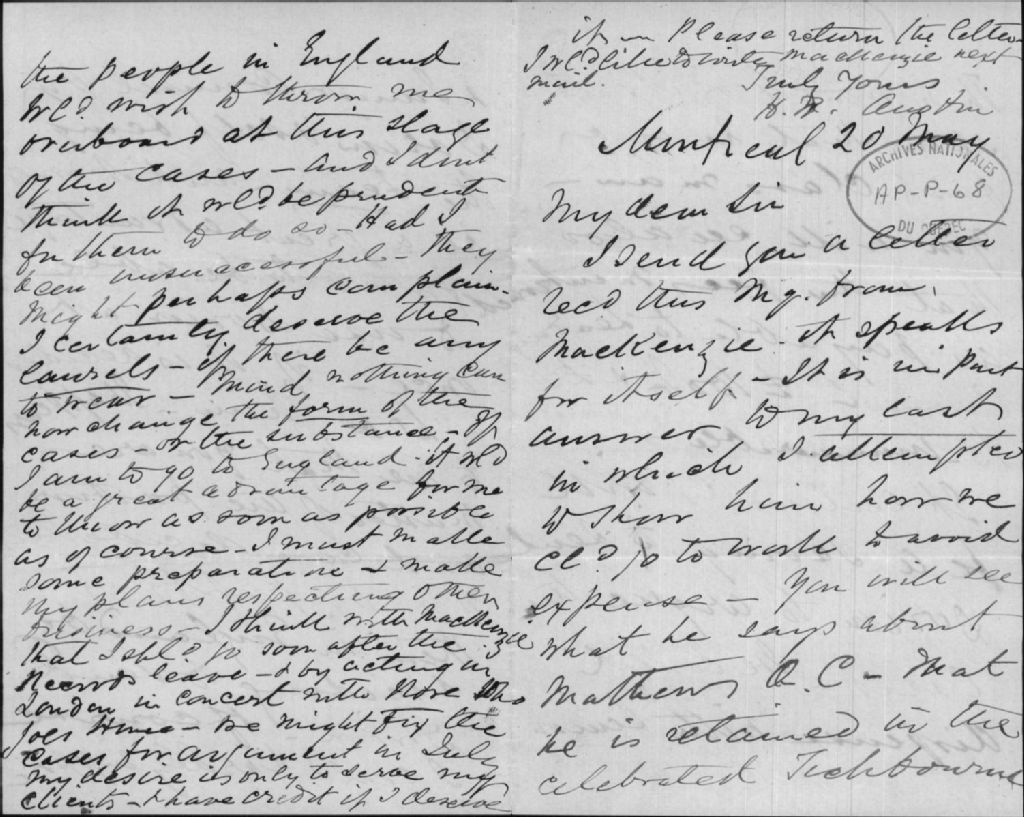 the people in England
wld. wish to throw me
overboard at this stage
of the cases - and I dont
think it wld. be prudent
for them to do so - Had I
been unsuccessful - they
might perhaps complain.
I certainly deserve the
laurels - if there be any
to wear - Mind nothing can
now change the form of the
cases - or the substance - If
I am to go to England - it wld
be a great advantage for me
to know as soon as possible
as of course - I must make
some preparation & make
my plans respecting other
business - I think with MacKenzie
that I shld. go soon after the
Records leave - & by acting in
London in concert with Rose who
Joes - we might fix the
cases for argument in July
my desire is only to serve my
clients - & have credit if I deserve
it - Please return the letter
I wld. like to write MacKenzie next
mail. Truly Yours
Austin
Montreal 20 May
ARCHIVES NATIONALES
AP-P-68
DU QUÉBEC
My dear Sir
I send you a letter
recd this Mg. from
MacKenzie - it speaks
for itself - It is in part
answer to my last
in which I attempted
to show him how we
cld. go to work to avoid
expense - You will see
what he says about
Mathews Q.C - that
he is retained in the
celebrated Tichbourne